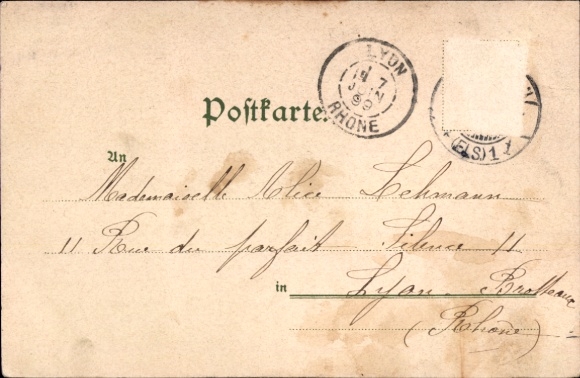 LYON
7
JUIN
99
RHONE
(ELS) 1
Postkarte.
An
Mademoiselle Alice Lehmann
11 Rue du parfait Silence 11
in Lyon-Brotteaux
(Rhône)